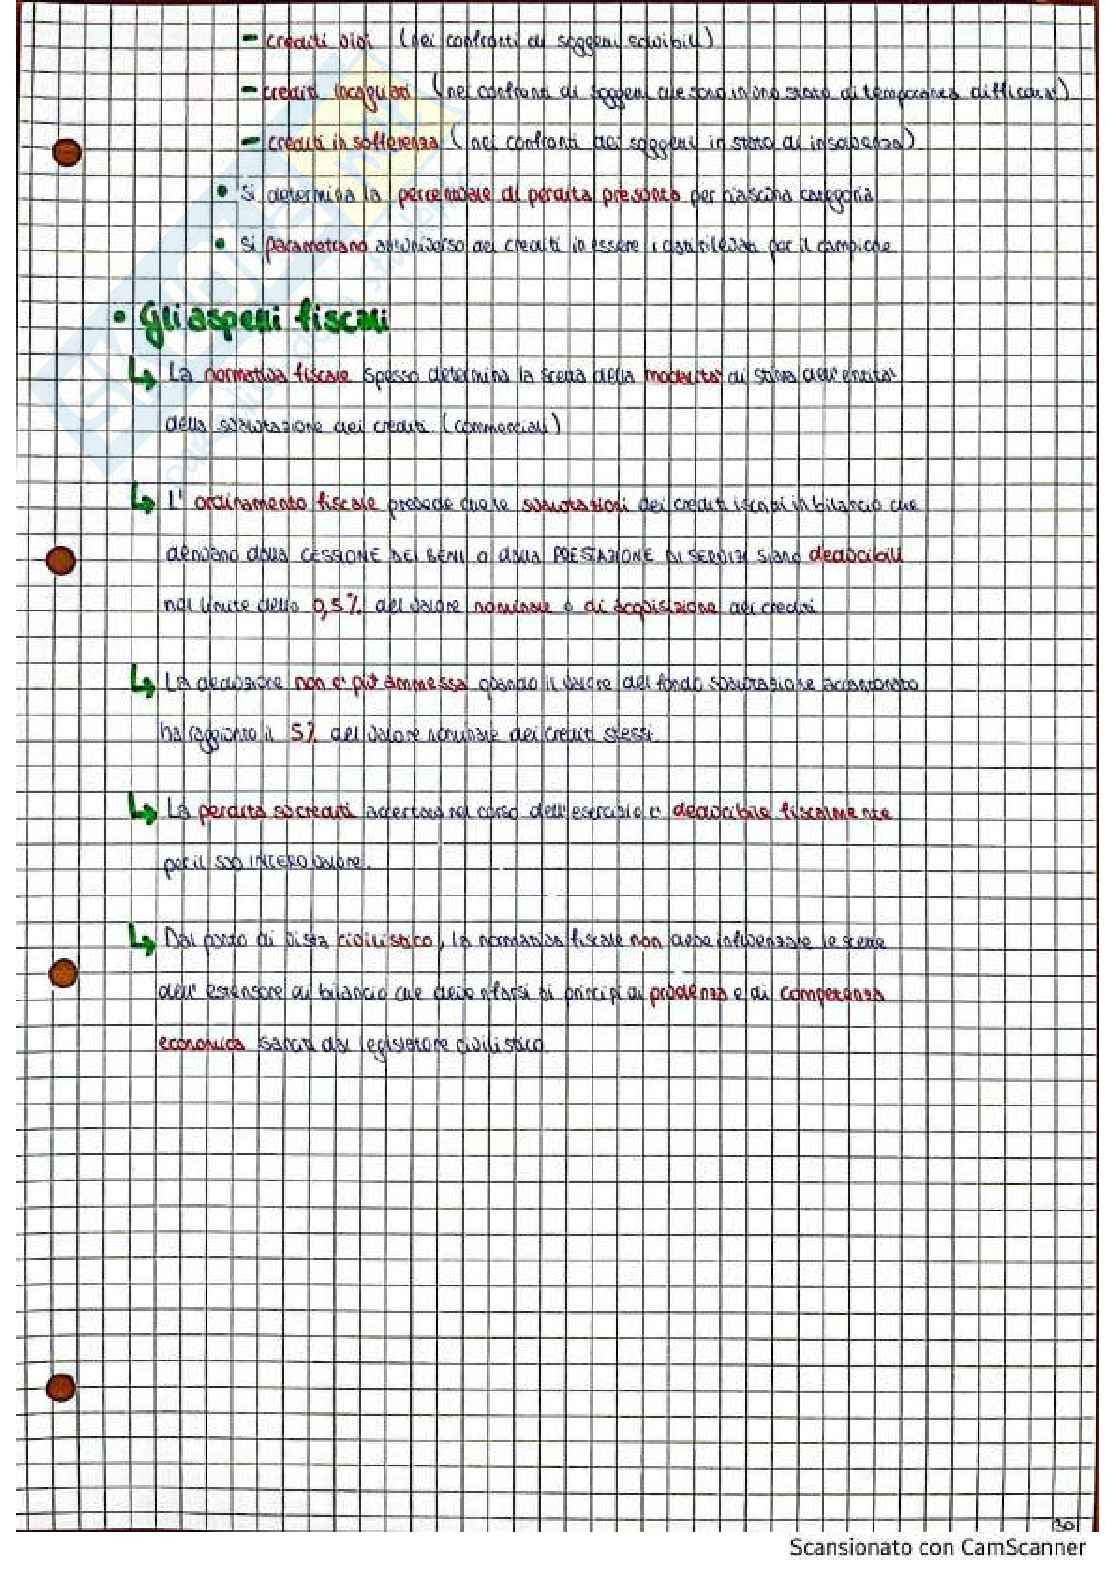 - crediti vivi (nei confronti di soggetti solvibili)
- crediti incagliati (nei confronti di soggetti che sono in uno stato di temporanea difficoltà)
- crediti in sofferenza (nei confronti dei soggetti in stato di insolvenza)
• Si determina la percentuale di perdita presunta per ciascuna categoria
• Si parametrano all'universo dei crediti in essere i dati rilevati per il campione
• Gli aspetti fiscali
↳ La normativa fiscale spesso determina la scelta della modalità di stima dell'entità
della svalutazione dei crediti (commerciali)
↳ L'ordinamento fiscale prevede che le svalutazioni dei crediti iscritti in bilancio che
derivano dalla CESSIONE DEI BENI o dalla PRESTAZIONE DI SERVIZI siano deducibili
nel limite dello 0,5% del valore nominale o di acquisizione dei crediti
↳ La deduzione non è più ammessa quando il valore del fondo svalutazione accantonato
ha raggiunto il 5% del valore nominale dei crediti stessi.
↳ La perdita su crediti accertata nel corso dell'esercizio è deducibile fiscalmente
per il suo INTERO valore.
↳ Dal punto di vista civilistico, la normativa fiscale non deve influenzare le scelte
dell'estensore di bilancio che deve rifarsi ai principi di prudenza e di competenza
economica sanciti dal legislatore civilistico
130
Scansionato con CamScanner